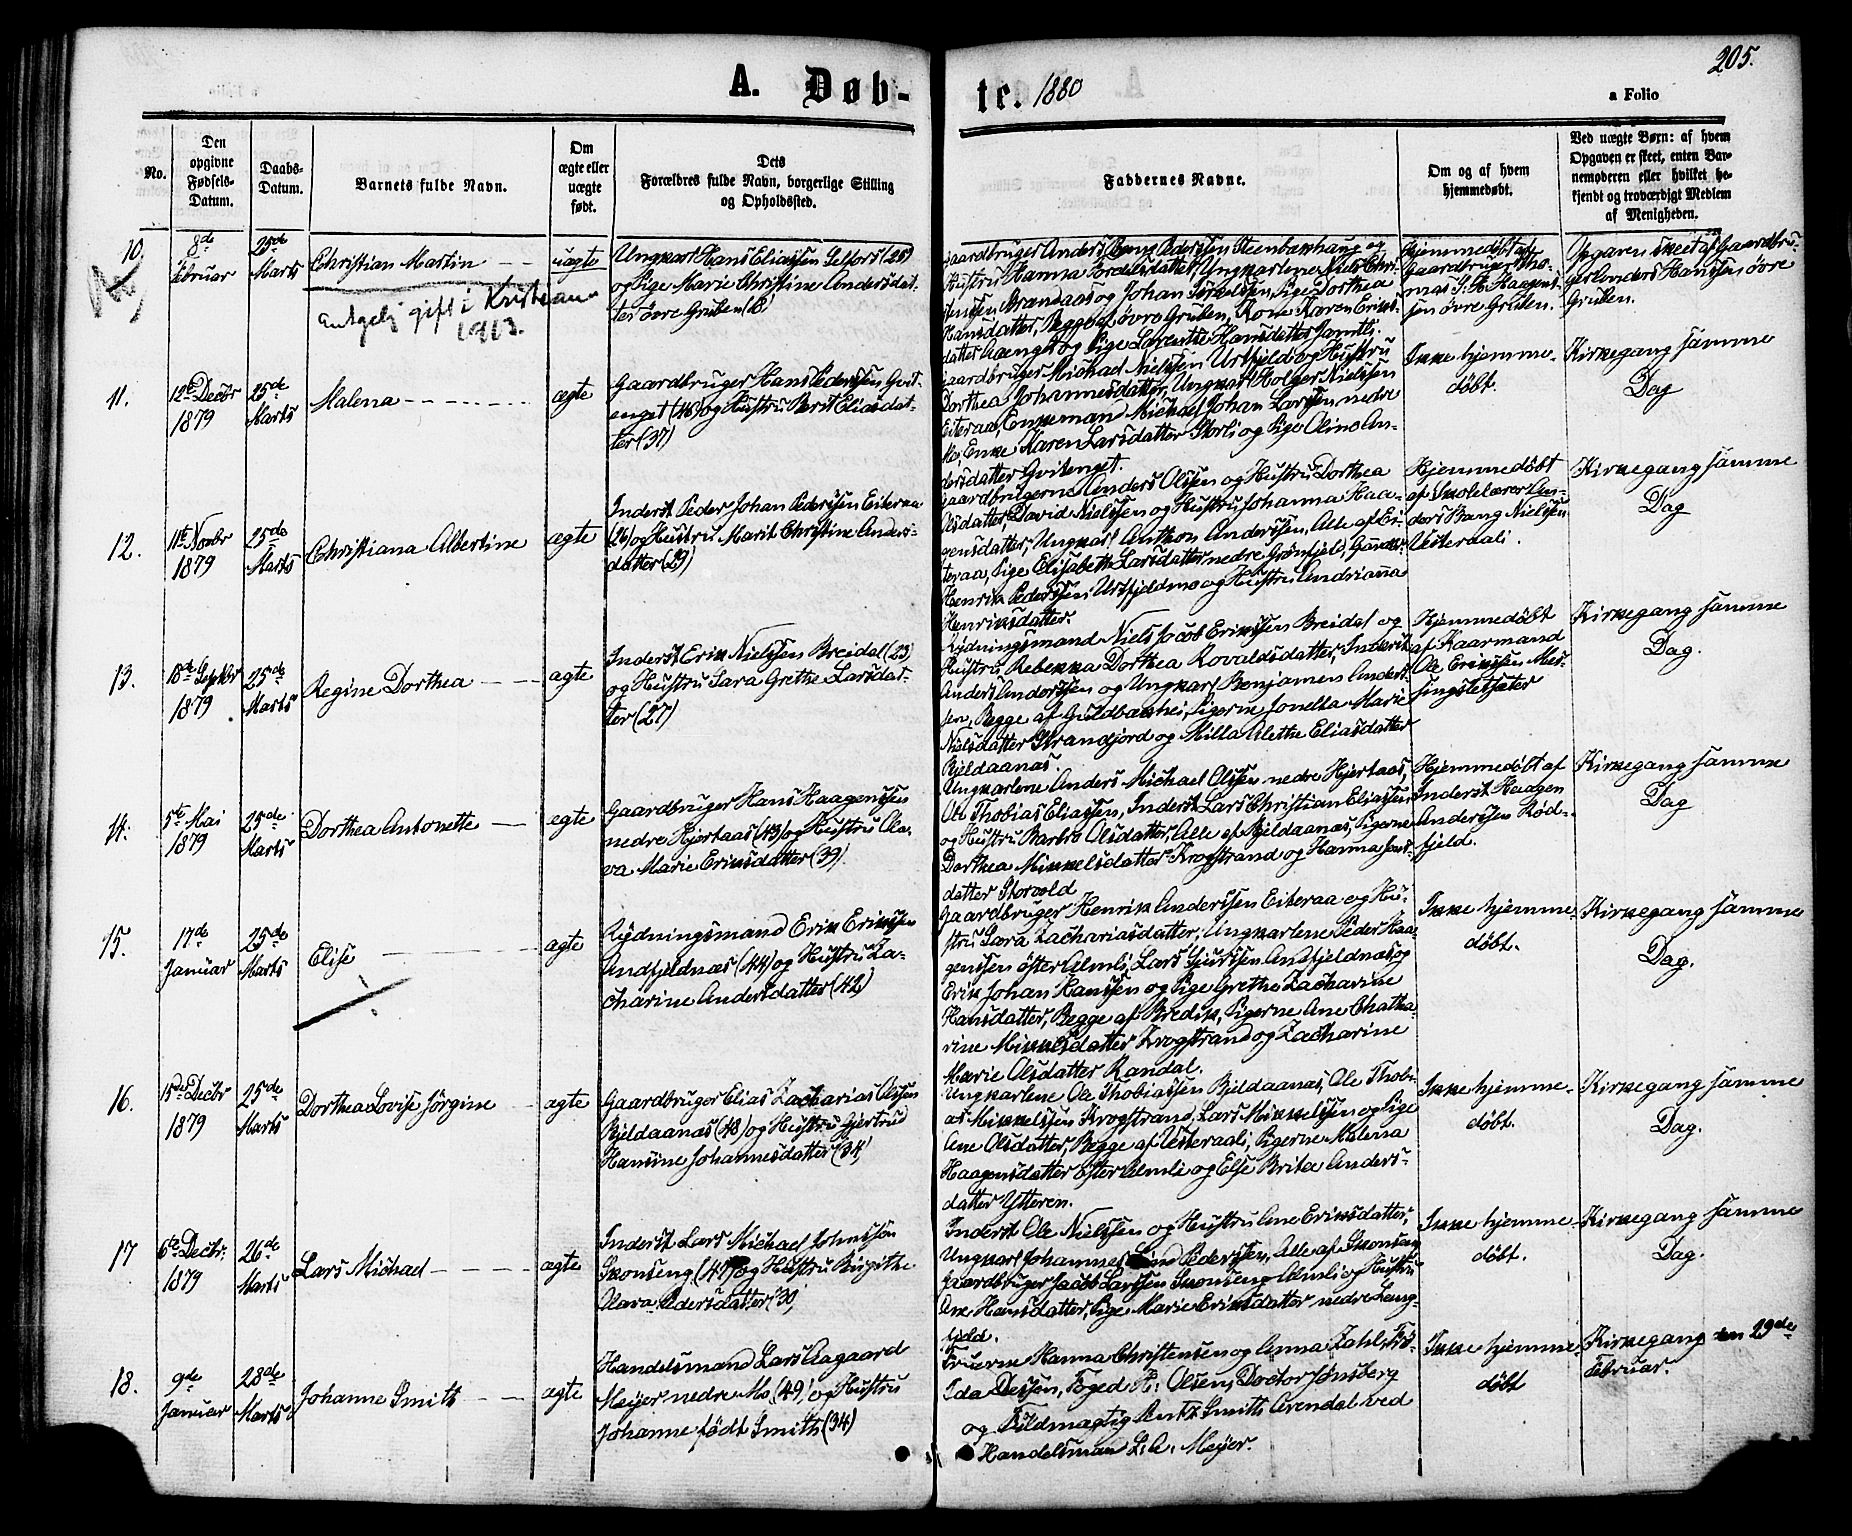 205.
A. Døb-
te. 1880
a Folio
No.
Den
opgivne
Fødsels-
Datum.
Daabs-
Datum.
Barnets fulde Navn.
Om
ægte eller
uægte
født.
Dets
Forældres fulde Navn, borgerlige Stilling
og Opholdssted.
Faddernes Navne.
Om og af hvem
hjemmedøbt.
Ved uægte Børn: af hvem
Opgaven er skeet, enten Bar-
nemoderen eller hvilket be-
kjendt og troværdigt Medlem
af Menigheden.
10
8de
Februar
25de
Marts
Christian Martin
gift i
1913.
uægte
Ungkarl Hans Eliassen Selfors (25)
og Pige Marie Christine Andersdat-
ter øvre Gruben
Gaardbruger Anders Pedersen Steenbækhaug og
Hustru Hanna Ungkarlene Niels Chri-
stensen Brandaas og Johan Pige Dorthea
Hansdatter, Begge af øvre Gruben, Kone Karen Eriks-
datter og Pige Lorentse Hansdatter
Hjemmedøbt af
Gaardbruger Tho-
mas Haagen-
sen øvre Gruben.
Opgaven skeet af Gaardbru-
ger Anders Hansen øvre
Gruben.
11.
12te Decbr
1879
25de
Marts
Malena
ægte
Gaardbruger Hans Pedersen Hvit-
enget (46) og Hustru Berit Eliasdat-
ter (37)
Gaardbruger Michael Nielsen Urtfjeld og Hustru
Dorthea Johannesdatter, Ungkarl Holger Nielsen
Eiteraa, Enkemand Michael Johan Larsen nedre
Mo, Enke Karen Larsdatter Storli og Pige Oline An-
dersdatter Hvitenget.
Ikke hjemme-
døbt.
Kirkegang samme
Dag
12.
11te Novbr
1879
25de
Marts
Christiana Albertine
ægte
Inderst Peder Johan Pedersen Eiteraa
(26) og Hustru Marit Christine Anders-
datter (29)
Gaardbrugerne Anders Olsen og Hustru Dorthea
Olsdatter, David Nielsen og Hustru Johanna Haa-
gensdatter, Ungkarl Anthon Andersen, Alle af Ei-
teraa, Pige Elisabeth Larsdatter nedre Grønfjeld, Gaardbr.
Henrik Pedersen Urtfjeldmo og Hustru Andrianna
Henriksdatter.
Hjemmedøbt
af Skolelærer An-
ders Bang Nielsen
Østeraali.
Kirkegang samme
Dag
13.
18de Septbr
1879
25de
Marts
Regine Dorthea
ægte
Inderst Erik Nielsen Bredal (23)
og Hustru Sara Grethe Larsdat-
ter (27)
Rydningsmand Niels Jacob Eriksen Bredal og
Hustru Rebekka Dorthea Rovaldsdatter, Inderst
Anders Andersen og Ungkarl Benjamin Anders-
sen, Begge af Guldbækhei, Pigerne Jonetta Marie
Nielsdatter Strandjord og Milla Alethe Eliasdatter
Bjeldaanæs.
Hjemmedøbt
af Kaarmand
Ole Eriksen Mes-
singsletsæter
Kirkegang samme
Dag.
14.
5te Mai
1879
25de
Marts
Dorthea Antonette
ægte
Gaardbruger Hans Haagensen
nedre Hjertaas (43) og Hustru Ola-
va Marie Eriksdatter (39)
Ungkarlene Anders Michael Olsen nedre Hjertaas,
Ole Thobias Eliassen, Inderst Lars Christian Eliassen
og Hustru Barbro Olsdatter, Alle af Bjeldaanæs, Pigerne
Dorthea Mikkelsdatter Krogstrand og Hanna
datter Storvold
Hjemmedøbt af
Inderst Haagen
Andersen Rød-
fjeld.
Kirkegang samme
Dag
15.
17de
Januar
25de
Marts
Elise
ægte
Rydningsmand Erik Eriksen
Andfjeldnæs (44) og Hustru Za-
charine Andersdatter (42)
Gaardbruger Henrik Andersen Eiteraa og Hu-
stru Sara Zachariasdatter, Ungkarlene Peder Haa-
gensen øster Almli, Lars Sjursen Andfjeldnæs og
Erik Johan Hansen og Pige Grethe Zacharine
Hansdatter, Begge af Bredik, Pigerne Ane Chatha-
rine Mikkelsdatter Krogstrand og Zacharine
Marie Olsdatter Randal.
Ikke hjemme-
døbt.
Kirkegang samme
Dag.
16.
15de Decbr
1879
25de
Marts
Dorthea Lovise Jørgine
ægte
Gaardbruger Elias Zacharias Olsen
Bjeldaanæs (48) og Hustru Gjertrud
Hansine Johannesdatter (34)
Ungkarlene Ole Thobiassen Bjeldaanæs, Ole Thobi-
as Mikkelsen Krogstrand, Lars Mikkelsen og Pige
Ane Olsdatter, Begge af Østeraali, Pigerne Malena
Haagensdatter øster Almli og Else Brita Anders-
datter Ytteren.
Ikke hjemme-
døbt.
Kirkegang samme
Dag.
17
6te Decbr.
1879
26de
Marts
Lars Michael
ægte
Inderst Lars Michael Johnsen
Skonseng (47) og Hustru Birgithe
Olava Pedersdatter (30)
Inderst Ole Nielsen og Hustru Ane Eriksdatter,
Ungkarl Johannes Lind Pedersen, Alle af Skonseng
Gaardbruger Jacob Larsen Skonseng Almli og Hustru
Ane Hansdatter, Pige Marie Eriksdatter nedre Leng-
Ikke hjemme-
døbt.
Kirkegang samme
Dag.
18.
9de
Januar
28de
Marts
Johanne Smith
ægte
Handelsmand Lars Aagaard
Meyer nedre Mo (49) og Hustru
Johanne født Smith (34)
Fruerne Hanna Christensen og Anna Zahl, Frø-
Ida Dessen, Foged H. Olsen, Doctor Jonsberg
og Fuldmægtig Bentz Smith Arendal ved
Handelsman L. A. Meyer.
Ikke hjemme-
døbt
Kirkegang den 29de
Februar.